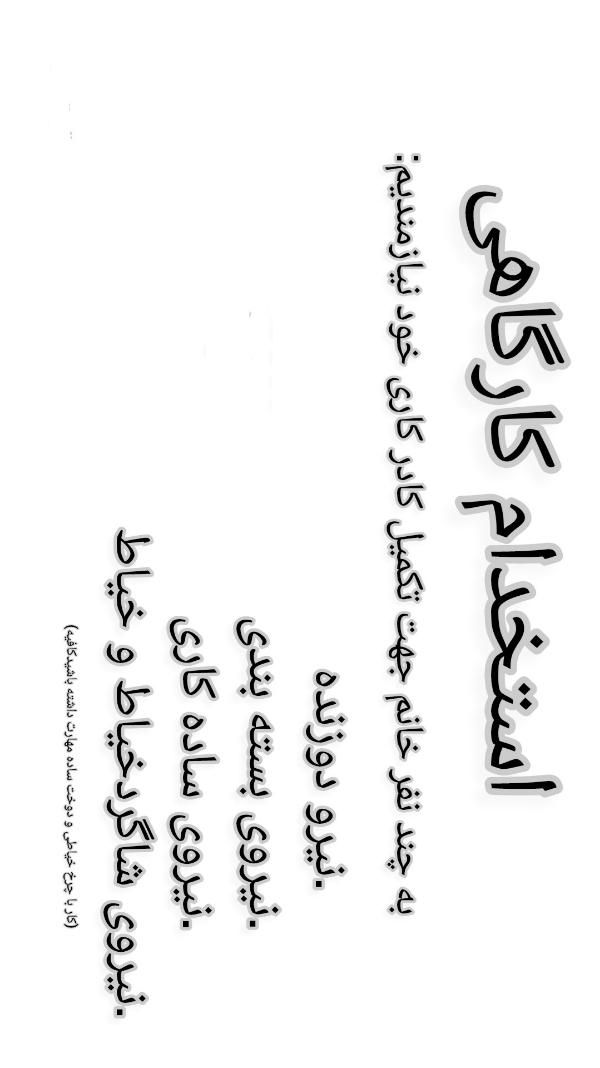 استخدام کارگاهی
به چند نفر خانم جهت تکمیل کادر کاری خود نیازمندیم:
.نیرو دوزنده
.نیروی بسته بندی
.نیروی ساده کاری
.نیروی شاگردخیاط و خیاط
(کار با چرخ خیاطی و دوخت ساده مهارت داشته باشیدکافیه)